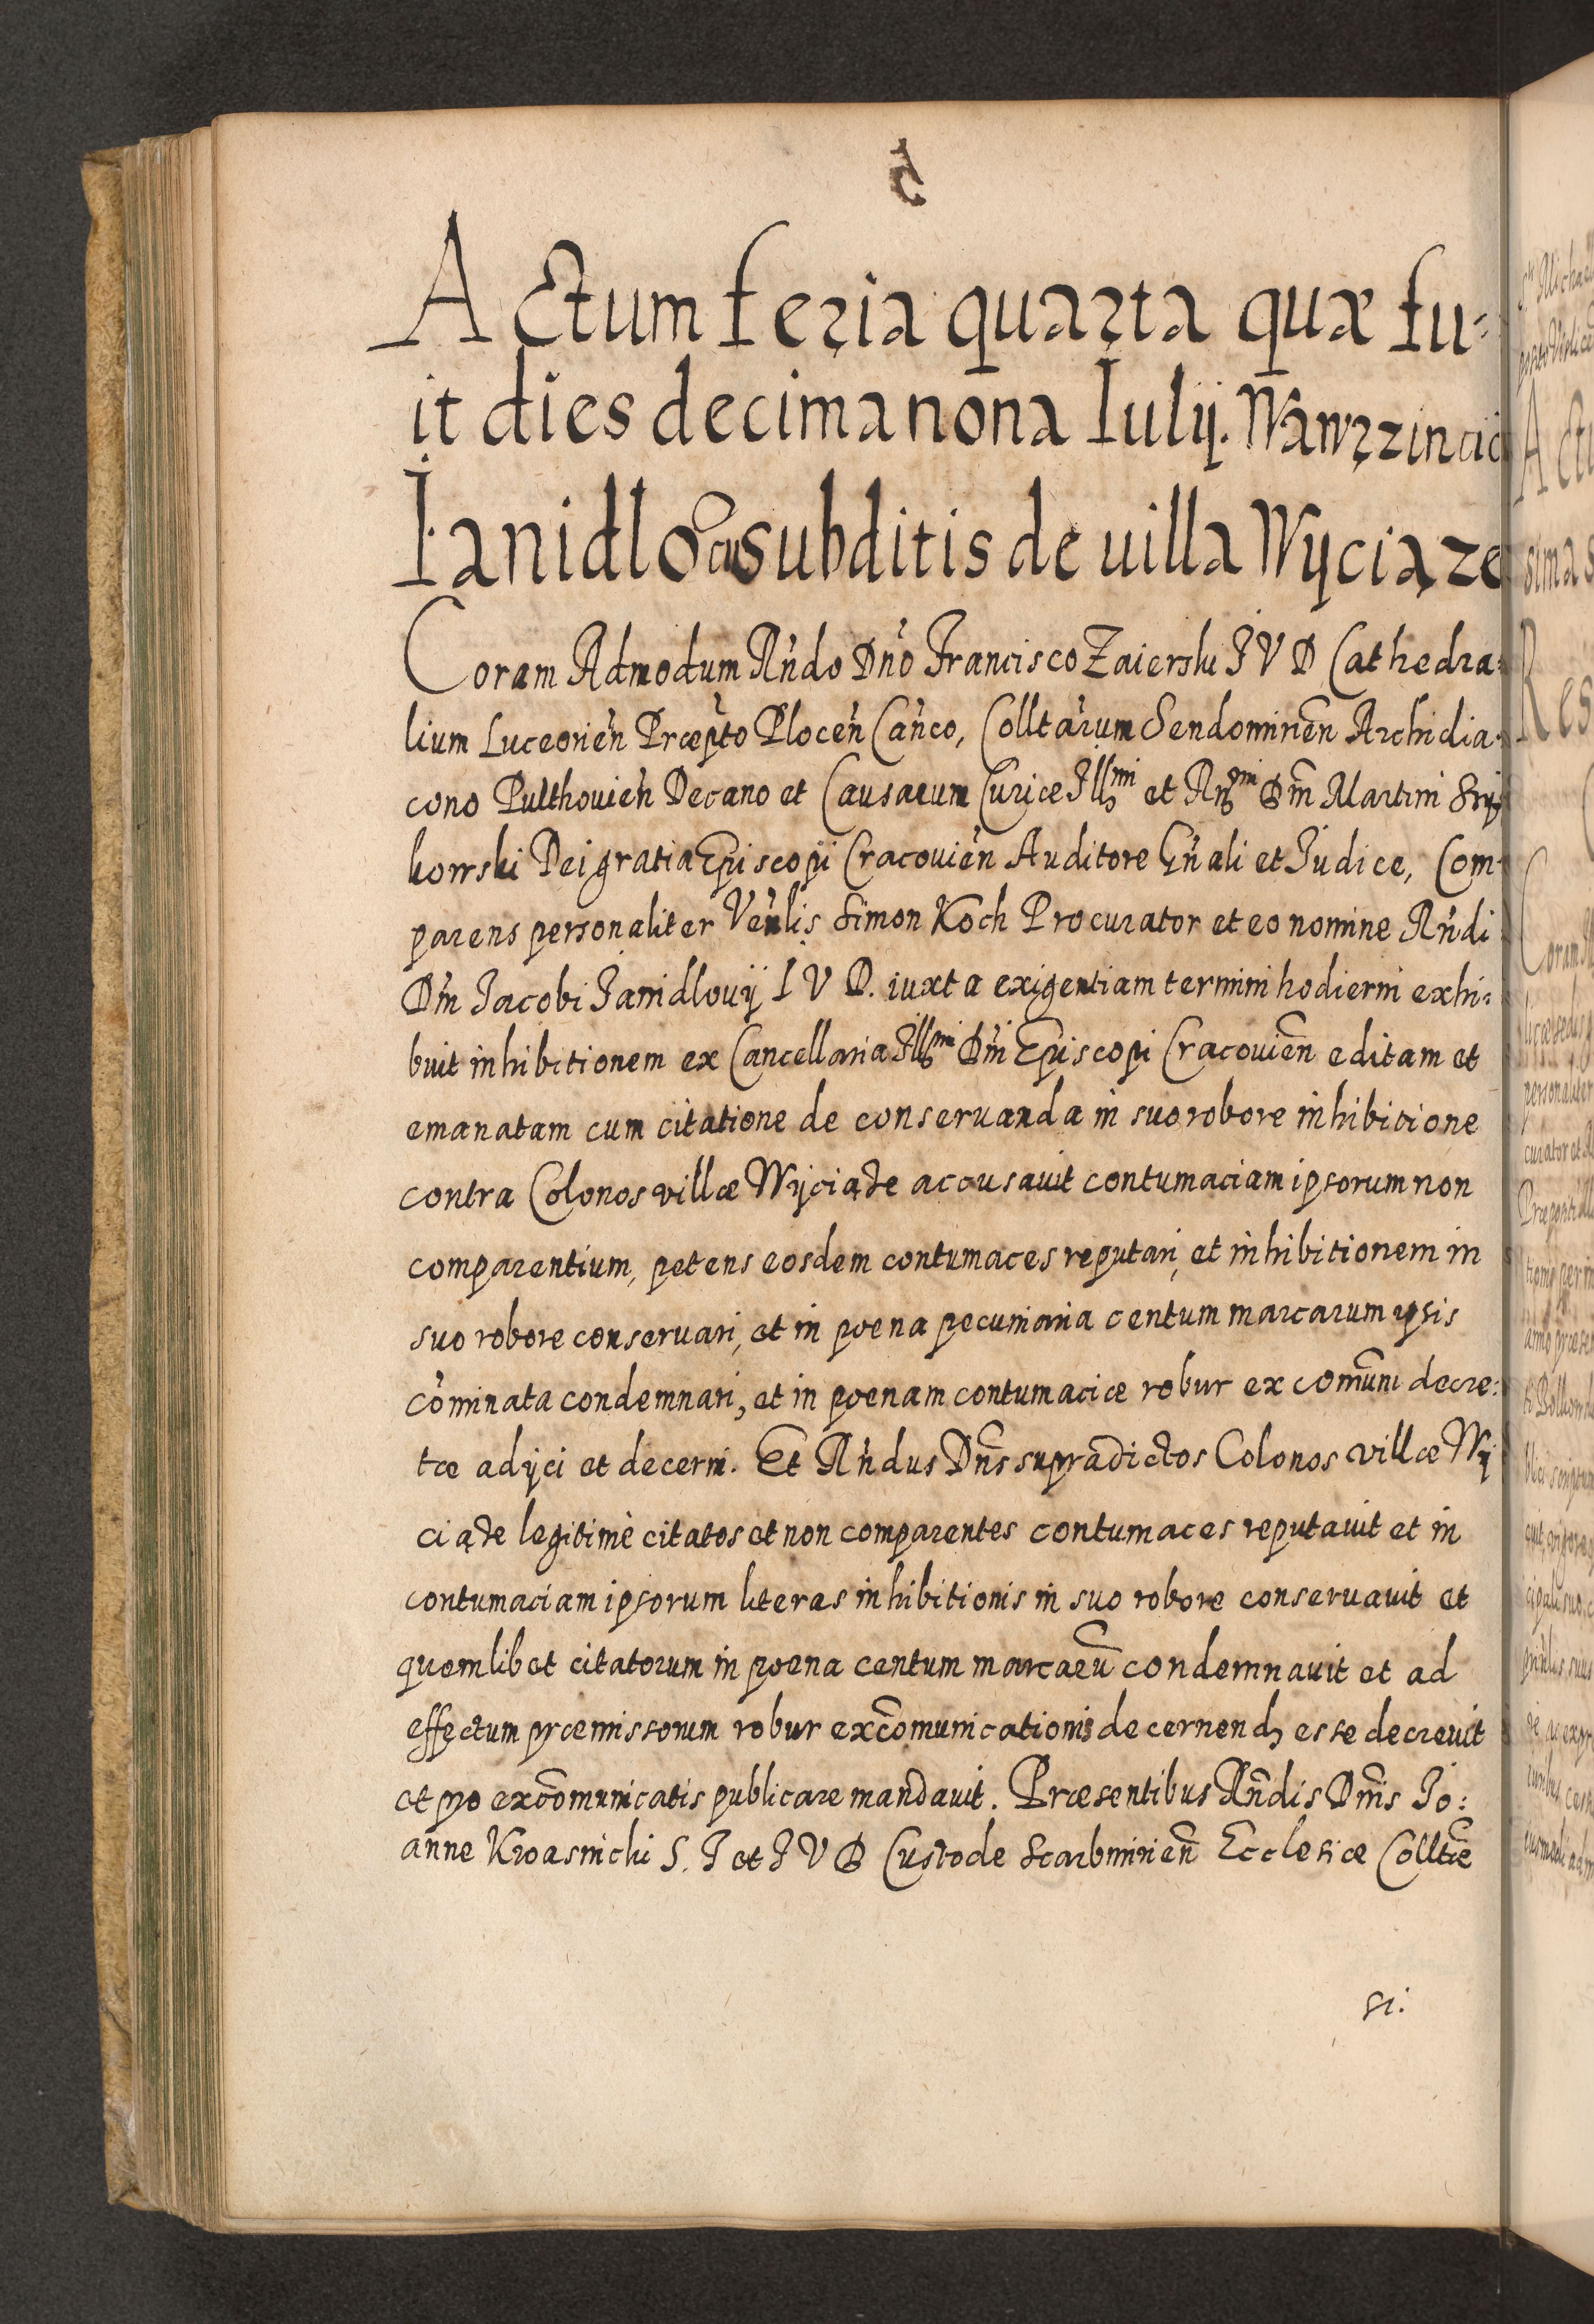 5
Actum feria quarta quæ fu-
it dies decima nona Iulÿ. Wawrzincio
Ianidlo cũ subditis de uilla Wÿciąze
Coram Admodum Rńdo Dńo Francisco Zaierski I V D Cathedra-
lium Luceorień Præpto Plocēn Cańco, Colltarum Sendomirień Archidia-
cono Pulthouień Decano et Causarum Curiæ Illmi et Rńmi Dm̃ Martini Szÿ-
kowski Dei gratia Ep̃iscopi Cracouień Auditore Gńali et Iudice, Com-
parens personaliter Veńlis Simon Koch Procurator et eo nomine Rńdi
Dńi Iacobi Ianidlouÿ I V D. iuxta exigentiam termini hodierni exhi-
buit inhibitionem ex Cancellaria Illmi Dńi Ep̃iscopi Cracouień editam et
emanatam cum citatione de conseruanda in suo robore inhibitione
contra Colonos villæ Wÿciąze accusauit contumaciam ipsorum non
comparentium, petens eosdem contumaces reputari, et inhibitionem in
suo robore conseruari, et in poena pecuniaria centum marcarum ipsis
cõminata condemnari, et in poenam contumaciæ robur ex com̃uni decre-
tæ adÿci et decerni. Et Rńdus Dñs supradictos Colonos villæ Wÿ
ciąze legitimè citatos et non comparentes contumaces reputauit et in
contumaciam ipsorum literas inhibitionis in suo robore conseruauit et
quemlibet citatorum in poena centum marcarũ condemnauit et ad
effectum præmissorum robur excõmunicationis decernendȝ esse decreuit
et pro excõmunicatis publicare mandauit. Præsentibus Rñdis Dñis Io:
anne Kroasnicki S. I et I V D Custode Scarbimirień Ecclesiæ Colltæ
si: